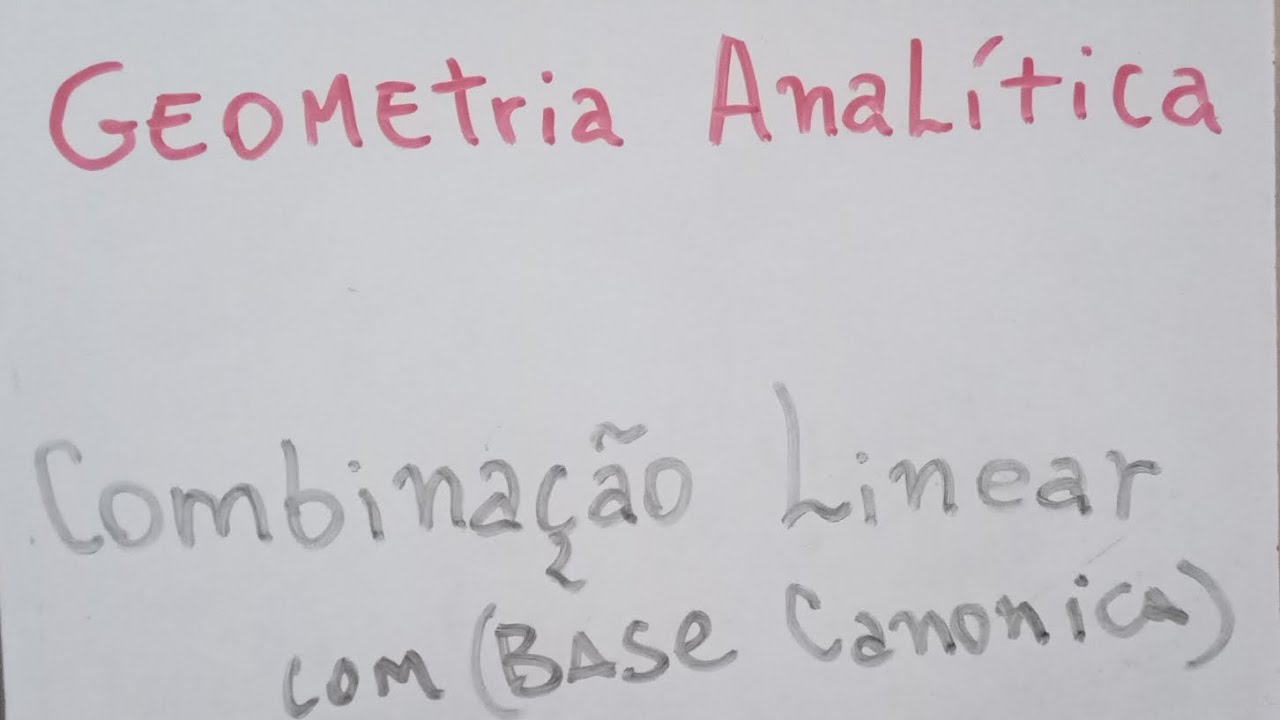 GEOMEtria AnaLítica
Combinação Linear
com (BASe Canonica)